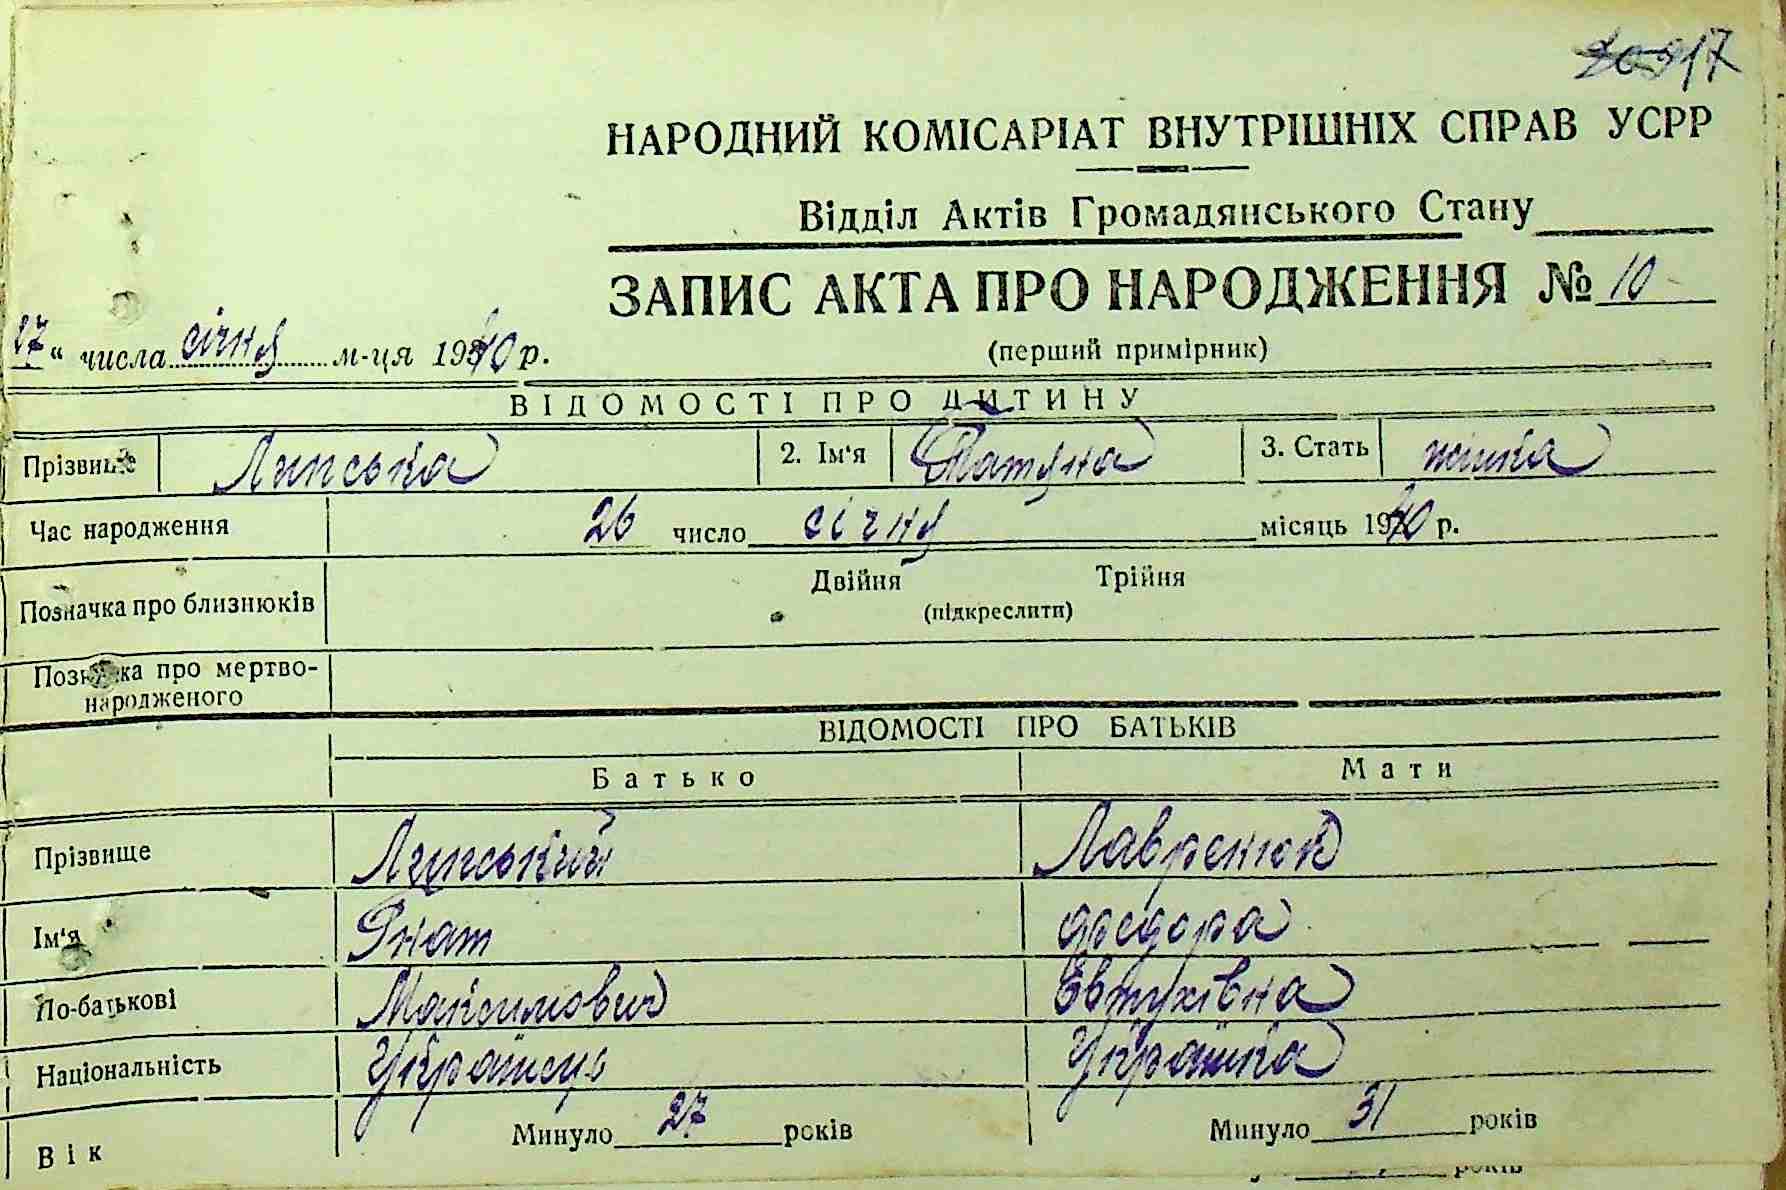 17
НАРОДНИЙ КОМІСАРІАТ ВНУТРІШНІХ СПРАВ УСРР
Відділ Актів Громадянського Стану
ЗАПИС АКТА ПРО НАРОДЖЕННЯ № 10
27 " числа січня м-ця 1940 р.
(перший примірник)
ВІДОМОСТІ ПРО ДИТИНУ
Прізвище Липська 2. Ім'я Татяна 3. Стать жінка
Час народження 26 число січня місяць 1940 р.
Позначка про близнюків Двійня Трійня
(підкреслити)
Позначка про мертво-
народженого
ВІДОМОСТІ ПРО БАТЬКІВ
Батько Мати
Прізвище Липський Лавренюк
Ім'я Гнат Федора
По-батькові Максимович Євтухівна
Національність Українець Українка
Вік Минуло 27 років Минуло 31 років
років